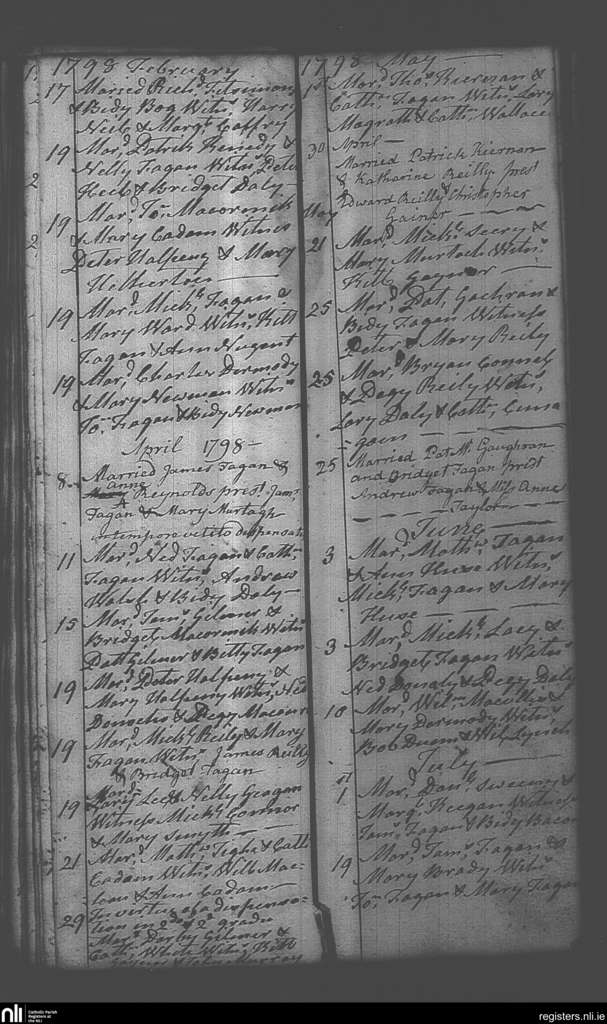 1798 February
17 Maried Rich.d Fitsimons
& Bidy Bog Witn.s Harry
Neile & Marg.t Caffry
19 Mar.d Patrick Kenedy &
Nelly Fagan Witn.s Peter
Keib & Bridget Daly
19 Mar.d Jo.n Macormick
& Mary Cadam Witness
Peter Halpeny & Mary
19 Mar.d Mich.l Fagan &
Mary Ward Witn.s Kitt
Fagan & Ann Nugent
19 Mar.d Charles Dermody
& Mary Newman Witn.s
Jo.n Fagan & Bidy Newman
April 1798
8 Married James Fagan &
Anne
Reynolds pres.t Jam.s
Fagan & Mary Murtagh
in tempore vetito dispensat
11 Mar.d Ned Fagan & Cath.n
Fagan Witn.s Andrew
Walsh & Bidy Daly
15 Mar.d Jam.s Gilmer &
Bridget Macormick Witn.s
Patt Gilmer & Betty Fagan
19 Mar.d Peter Halpeny &
Mary Halpeny Witn.s Ned
Donocho & Pegy Macour
19 Mar.d Mich.l Reily & Mary
Fagan Witn.s James Reilly
& Bridget Fagan
Mar.d
19 Lary Lee & Nelly Geagan
Witness Mich.l Connor
& Mary Smyth
21 Mar.d Math.w Tighe & Cath
Cadam Witn.s Will Mac-
& Ann Cadam
In vertue of a dispensa-
tion in 2.d & 2.d gradu
29 Mar.d Darby Gilmer &
Cath.n White Witn.s Batt
Murray
1798 May
1st Mar.d Tho.s Kiernan &
Cath.n Fagan Witn.s Lary
Magrath & Cath.n Wallace
April
30 Married Patrick Kiernan
& Katharine Reilly prest
Edward Reilly & Christopher
May Gainor
21 Mar.d Mich.l Seery &
Mary Murtoch Witn.s
Kitt Gaynor
25 Mar.d Pat, Gachran &
Bidy Fagan Witness
Peter & Mary Reily
25 Mar.d Bryan Connel
& Pegy Reily Witn.s
Lary Daly & Cath.n Cuna
-gam
25 Married Pat M.cGaughran
and Bridget Fagan prest
Andrew Fagan & Miss Anne
Taylor
June
3 Mar.d Math.w Fagan
& Ann Huse Witn.s
Mich.l Fagan & Mary
Huse
3 Mar.d Mich.l Lacy &
Bridget Fagan Witn.s
Ned Donaly & Pegy Daly
10 Mar.d Wil.m &
Mary Dermody Witn.s
Bob Dunn & Wil Lynch
July
1st Mar.d Dan.l Sweeny &
Marg.t Keegan Witness
Jam.s Fagan & Bidy Bacon
19 Mar.d Jam.s Fagan &
Mary Brady Witn.s
Jo.n Fagan & Mary Fagan
nli
Catholic Parish
Registers at
the NLI
registers.nli.ie